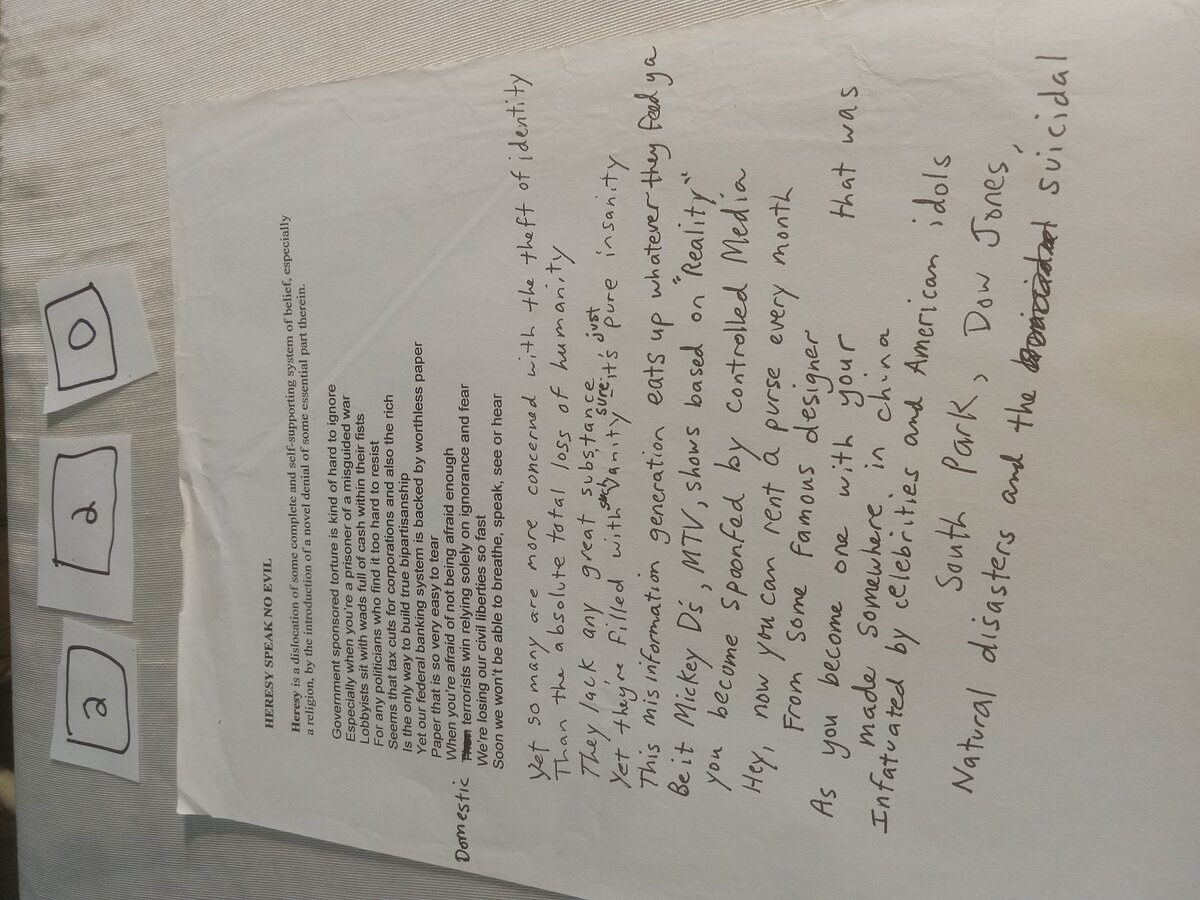 2
2
0
HERESY SPEAK NO EVIL
Heresy is a dislocation of some complete and self-supporting system of belief, especially
a religion, by the introduction of a novel denial of some essential part therein.
Government sponsored torture is kind of hard to ignore
Especially when you're a prisoner of a misguided war
Lobbyists sit with wads full of cash within their fists
For any politicians who find it too hard to resist
Seems that tax cuts for corporations and also the rich
Is the only way to build true bipartisanship
Yet our federal banking system is backed by worthless paper
Paper that is so very easy to tear
When you're afraid of not being afraid enough
Domestic terrorists win relying solely on ignorance and fear
We're losing our civil liberties so fast
Soon we won't be able to breathe, speak, see or hear
Yet so many are more concerned with the theft of identity
Than the absolute total loss of humanity
They lack any great substance
Yet they're filled with vanity sure it's just pure insanity
This misinformation generation eats up whatever they feed ya
Be it Mickey D's, MTV, shows based on "Reality"
you become spoonfed by controlled Media
Hey, now you can rent a purse every month
From some famous designer
As you become one with your that was
made somewhere in china
Infatuated by celebrities and American idols
South Park, Dow Jones,
Natural disasters and the suicidal